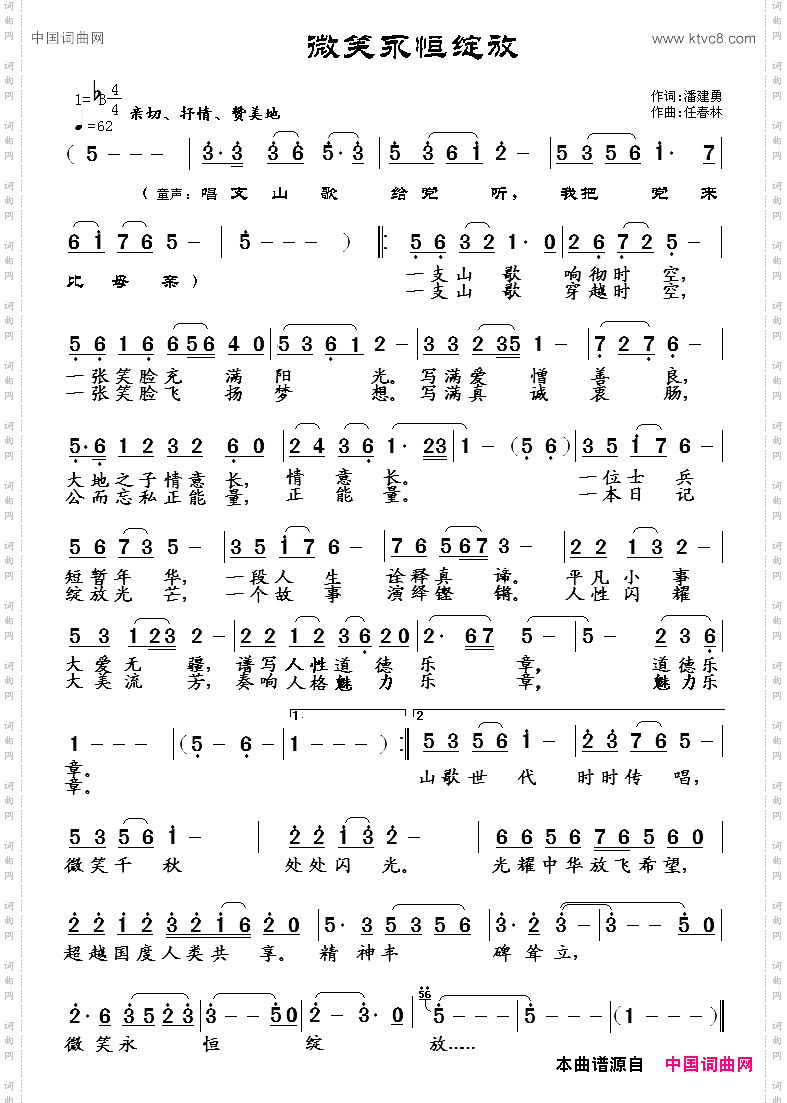 中国词曲网
微笑永恒绽放
www.ktvc8.com
1=♭B 4/4
作词:潘建勇
♩=62
亲切、抒情、赞美地
作曲:任春林
( 5 - - - | 3· 3 3 6 5· 3 | 5 3 6 1 2 - | 5 3 5 6 1· 7
(童声:唱支山歌给党听,我把党来
6 1 7 6 5 - | 5 - - - ) ‖: 5 6 3 2 1· 0 | 2 6 7 2 5 -
比母亲)
一支山歌响彻时空,
一支山歌穿越时空,
5 6 1 6 6 5 6 4 0 | 5 3 6 1 2 - | 3 3 2 3 5 1 - | 7 2 7 6 -
一张笑脸充满阳光。写满爱憎善良,
一张笑脸飞扬梦想。写满真诚衷肠,
5· 6 1 2 3 2 6 0 | 2 4 3 6 1· 2 3 | 1 - (5 6) | 3 5 1 7 6 -
大地之子情意长,情意长。一位士兵
公而忘私正能量,正能量。一本日记
5 6 7 3 5 - | 3 5 1 7 6 - | 7 6 5 6 7 3 - | 2 2 1 3 2 -
短暂年华,一段人生诠释真谛。平凡小事
绽放光芒,一个故事演绎铿锵。人性闪耀
5 3 1 2 3 2 - | 2 2 1 2 3 6 2 0 | 2· 6 7 5 - | 5 - 2 3 6
大爱无疆,谱写人性道德乐章,道德乐
大美流芳,奏响人格魅力乐章,魅力乐
1.
2
1 - - - | ( 5 - 6 - | 1 - - - ) :‖ 5 3 5 6 1 - | 2 3 7 6 5 -
章。
山歌世代时时传唱,
章。
5 3 5 6 1 - | 2 2 1 3 2 - | 6 6 5 6 7 6 5 6 0
微笑千秋处处闪光。光耀中华放飞希望,
2 2 1 2 3 2 1 6 2 0 | 5· 3 5 3 5 6 | 2· 3 3 - | 3 - 5 -
超越国度人类共享。精神丰碑耸立,
2· 6 3 5 2 3 | 3 - - 5 0 | 2 - 3· 0 | 56 5 - - - | 5 - - - | ( 1 - - - ) ‖
微笑永恒绽放……
本曲谱源自 中国词曲网
词曲网